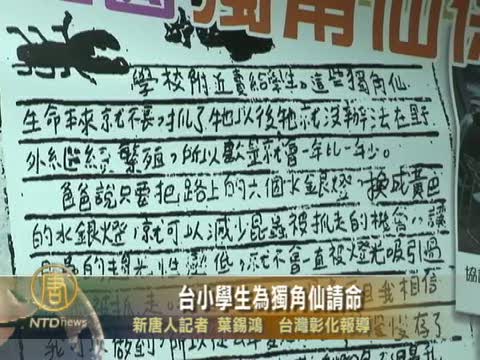 獨角仙
學校附近賣給學生。這些獨角仙
生命本來就不長，抓了牠以後牠就沒辦法在野
外繼續繁殖，所以數量就會一年比一年少。
爸爸說只要把路上的六個水銀燈，換成黃色
的水銀燈，就可以減少昆蟲被抓走的機會，讓
的趨光性變低，就不會一直被燈光吸引過
相信
台小學生為獨角仙請命
新唐人記者 葉錫鴻 台灣彰化報導
唐
NTDnews
協